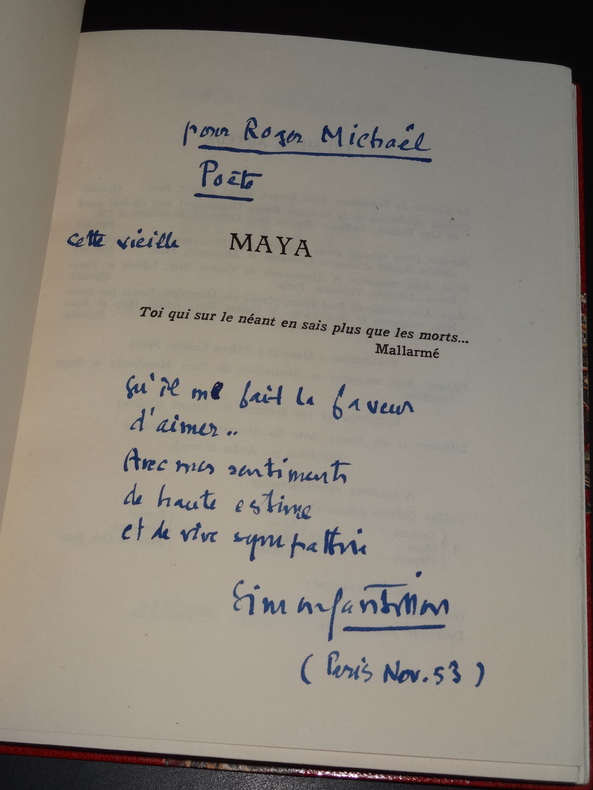 pour Roger Michaël
Poëte
cette vieille MAYA
Toi qui sur le néant en sais plus que les morts...
Mallarmé
qu'il me fait la faveur
d'aimer..
Avec mes sentiments
de haute estime
et de vive sympathie
Simon Gantillon
(Paris Nov. 53)